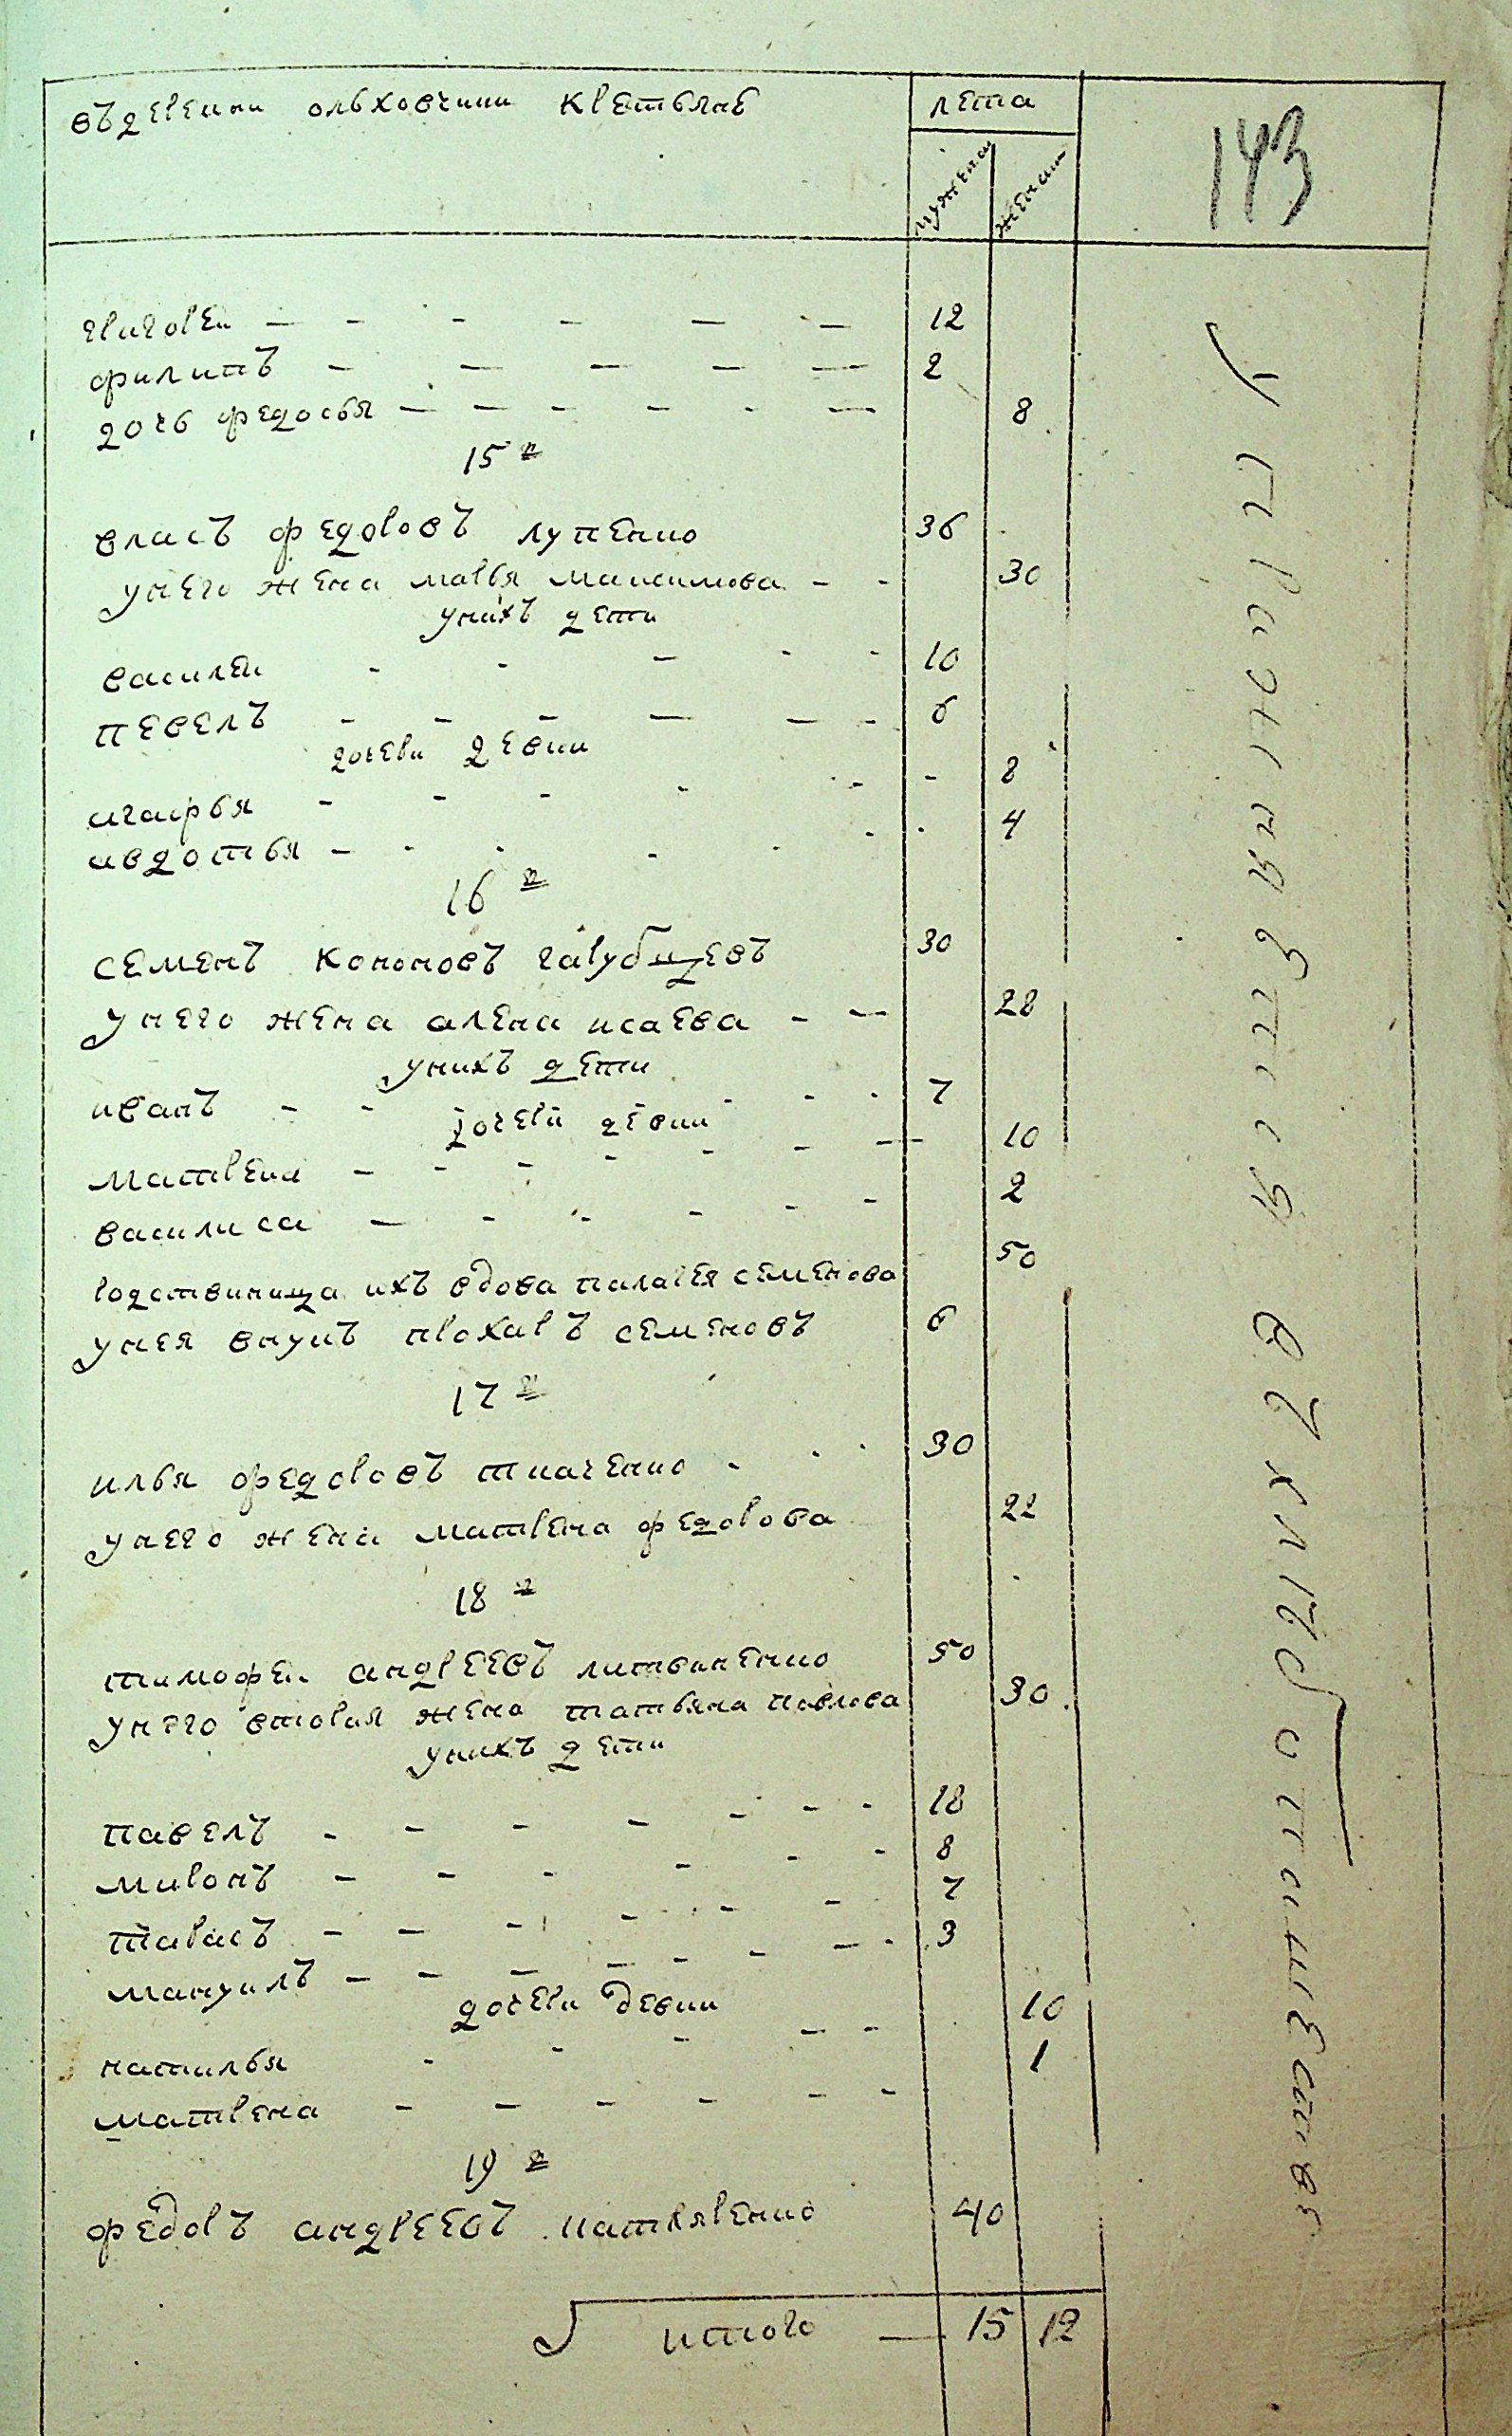 въ деревни ольховчики крестьянъ
лета
мужска
женска
143
григореи 12
филипъ 2
дочь федосья 8
15й
власъ федоровъ лупенко 36
унего жена марья максимова 30
унихъ дети
василеи 10
певелъ 6
дочери девки
агафья 8
авдотья 4
16й
семенъ кононовъ гарубицевъ 30
унего жена алена исаева 28
унихъ дети
иванъ 7
дочери девки
матрена 10
василиса 2
родственица ихъ вдова палагея семенова 50
унея внукъ прохаръ семеновъ 6
17й
илья федоровъ ткаченко 30
унего жена матрена федорова 22
18й
тимофеи андреевъ литвиненко 50
унего вторая жена татьяна павлова 30
унихъ дети
павелъ 18
миронъ 8
тарасъ 7
мануилъ 3
дочери девки
наталья 10
матрена 1
19й
федоръ андреевъ 40
итого 15 12